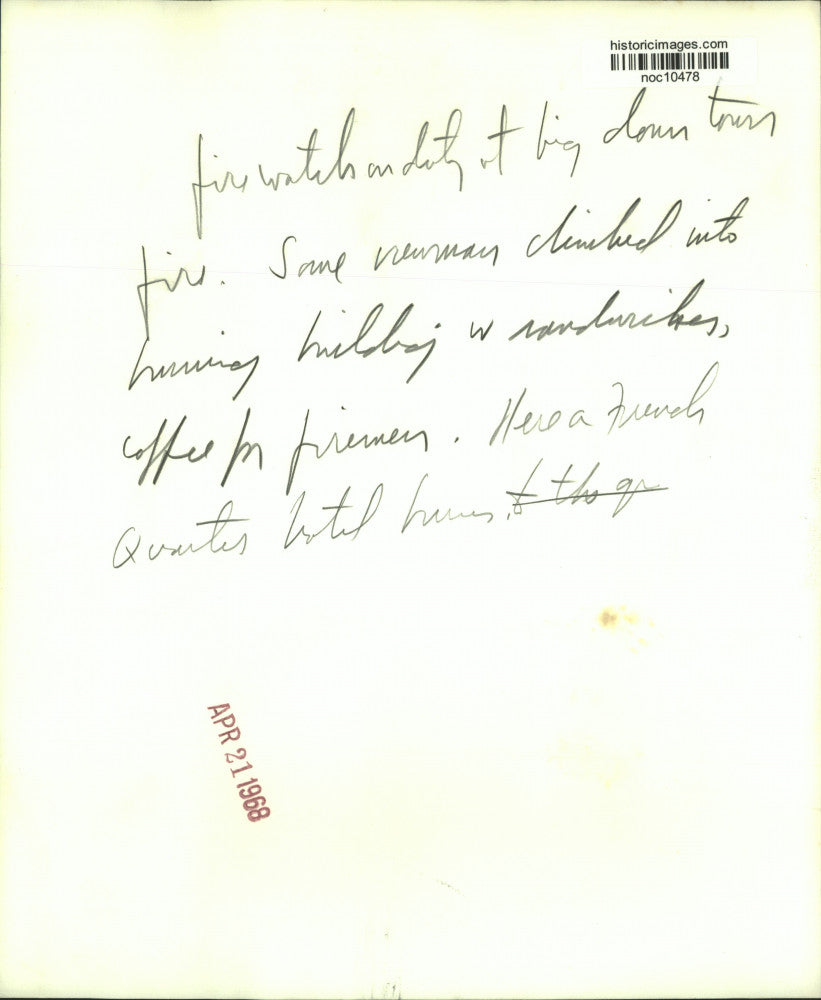 historicimages.com
noc10478
fire watch on duty at big down town
fire. Some newsmen climbed into
burning building w sandwiches,
coffee for firemen. Here a French
Quarter hotel burns,
APR 21 1968